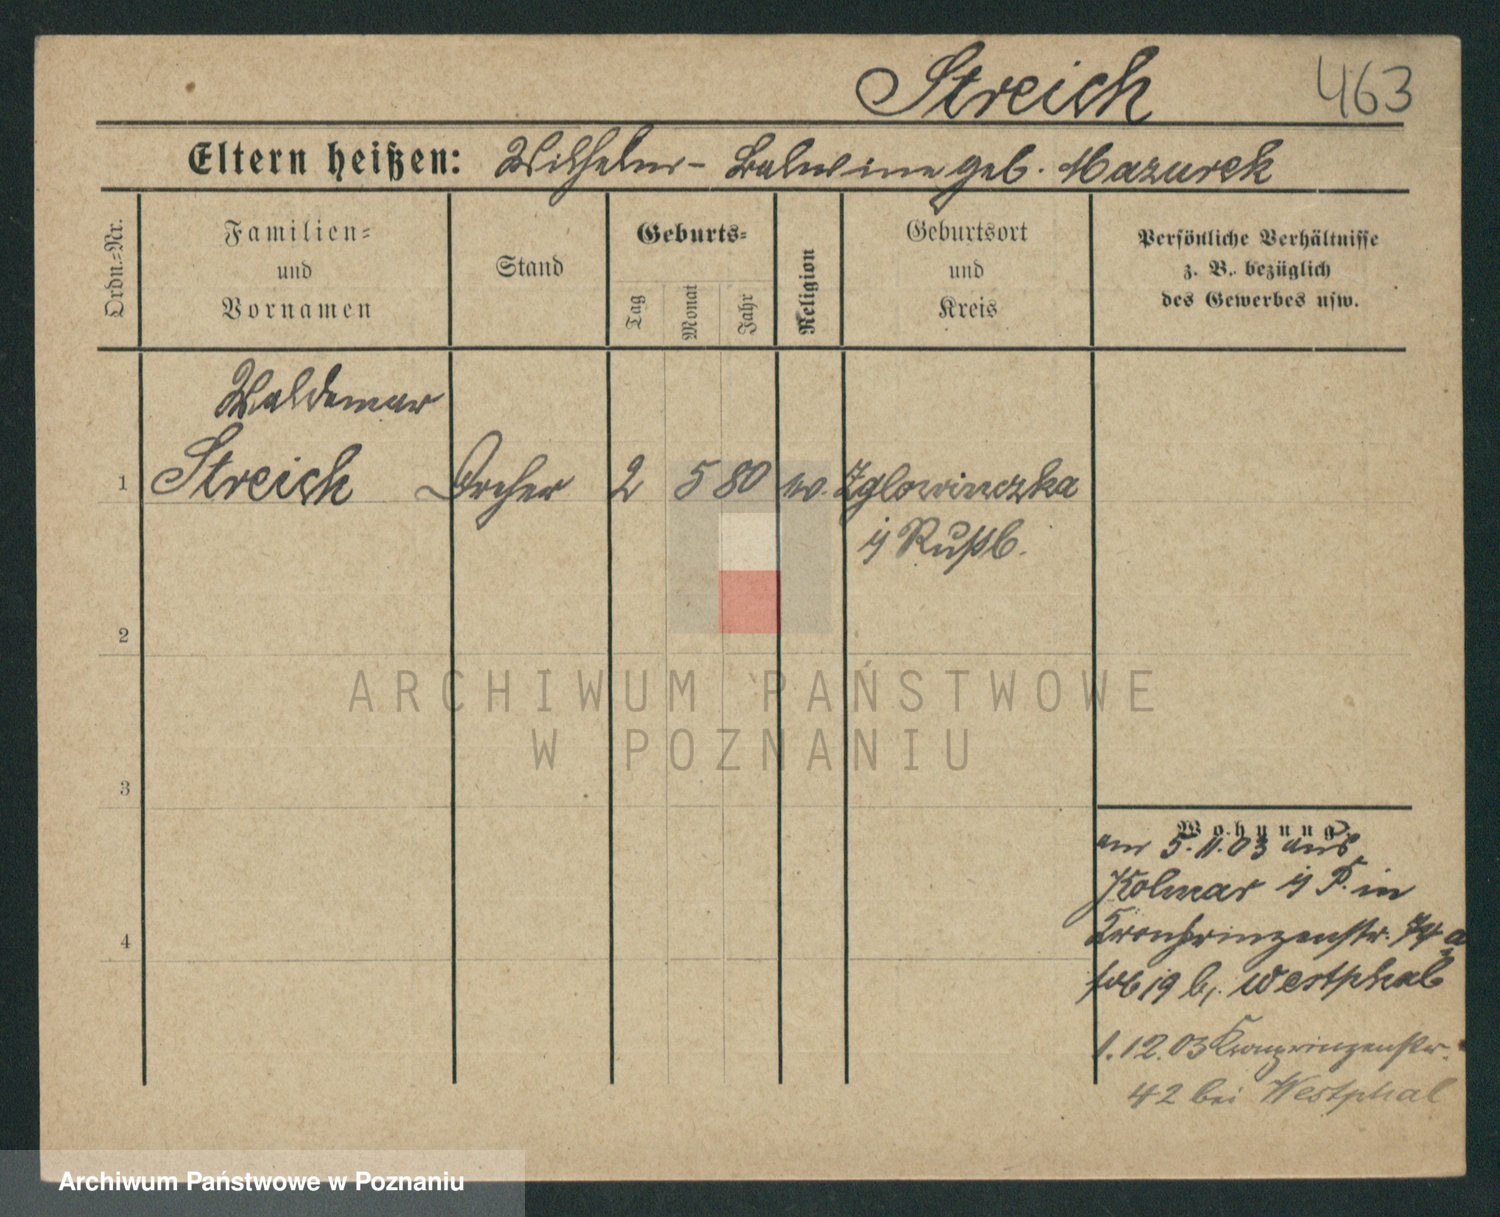 Streich 463
Eltern heißen: Wilhelm - geb. Mazurek
Ordn.-Nr.
Familien-
und
Vornamen
Stand
Geburts-
Tag
Monat
Jahr
Religion
Geburtsort
und
Kreis
Persönliche Verhältnisse
z. B. bezüglich
des Gewerbes usw.
Waldemar
1 Streich 2 5 80 Zglowinczka
Rußl.
2
3
4
Wohnung
am 5.11.03 aus
Kolmar P. in
Kronprinzenstr.
19 b. Westphal
1.12.03 Kronprinzenstr.
42 bei Westphal
ARCHIWUM PAŃSTWOWE
W POZNANIU
Archiwum Państwowe w Poznaniu